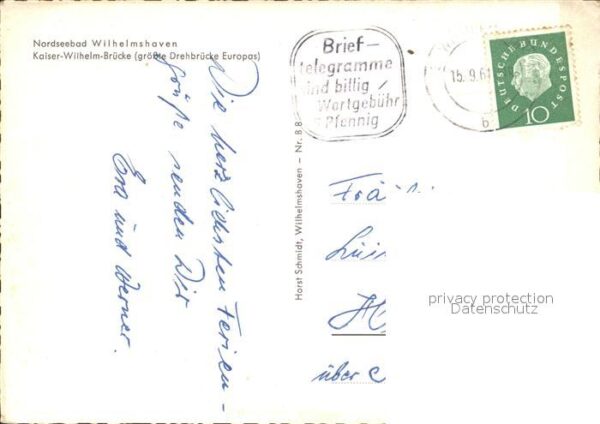 Nordseebad Wilhelmshaven
Kaiser-Wilhelm-Brücke (größte Drehbrücke Europas)
Brief-
telegramme
sind billig
Wortgebühr
Pfennig
15.9.61
DEUTSCHE BUNDESPOST
10
Die herzlichsten Ferien-
grüße senden Dir
Eva und Werner.
Horst Schmidt, Wilhelmshaven - Nr. B 8
Frä
über
privacy protection
Datenschutz